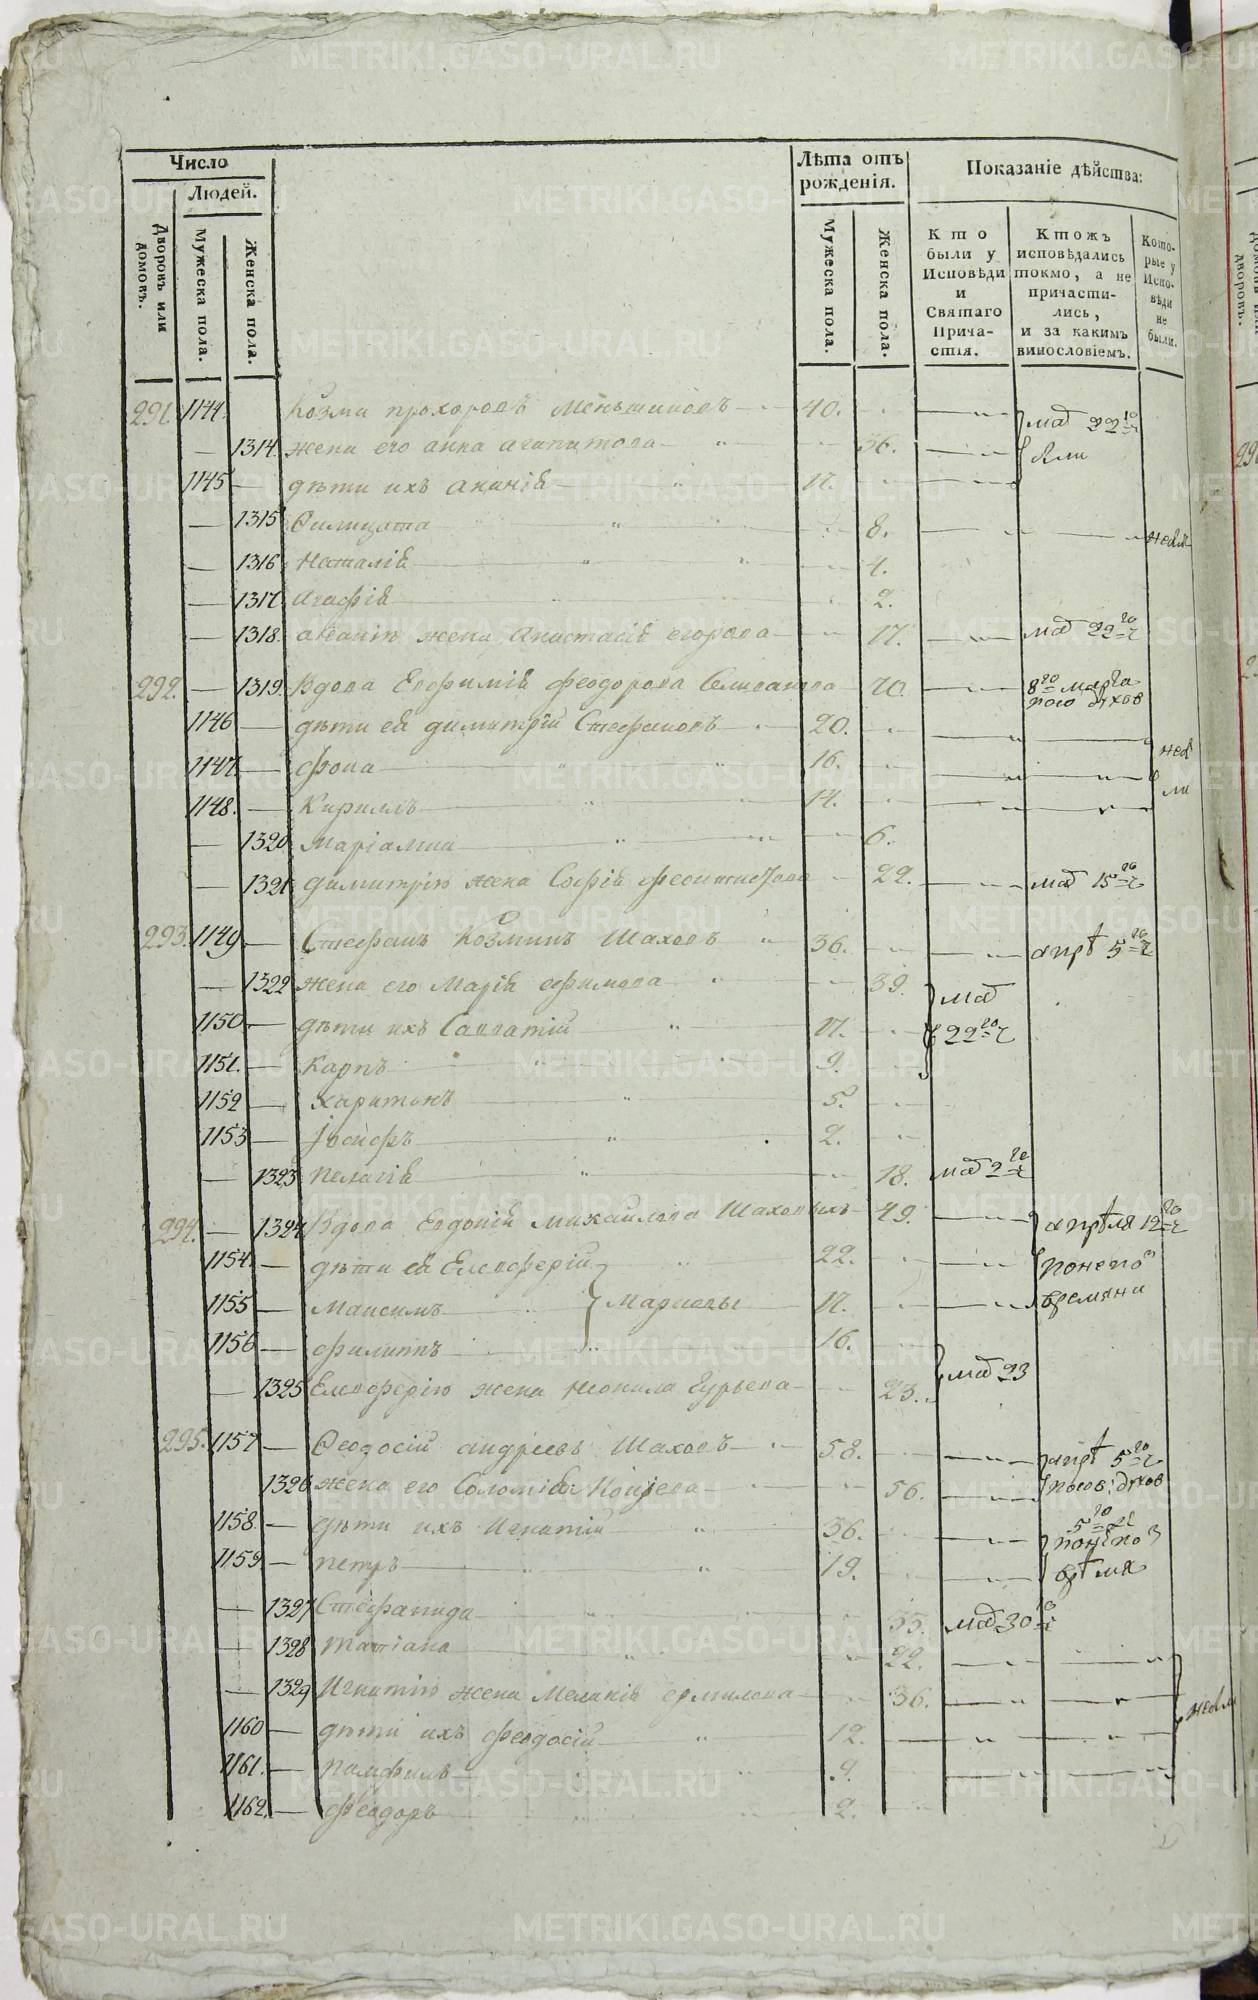 Число
Людей.
Дворовъ или домовъ.
Мужеска пола.
Женска пола.
Лѣта отъ рожденія.
Мужеска пола.
Женска пола.
Показаніе дѣйства:
Кто были у Исповѣди и Святаго Причастія.
Ктожъ исповѣдались токмо, а не причастились, и за какимъ винословіемъ.
Которые у Исповѣди не были.
291. 1144. Козма прохоровъ Меньшиковъ 40. маӣ 22
1314. жена его анна агапитова 36.
1145 дѣти ихъ Ананій 17.
1315 Филицата 8.
1316 Наталія 4.
1317 Агафія 2.
1318. жена Анастасія егорова 17. маӣ 22
292. 1319. Вдова Евфимія феодорова 70. 8 марта
1146 дѣти ея димитрій Стефановъ 20.
1147 фока 16.
1148. Кириллъ 14.
1320 Маріамна 6.
1321 димитрію жена Софія 22. маӣ 15
293. 1149 Стефанъ Козминъ Шаховъ 36. апрѣ 5
1322 жена его Марія ефимова 39. маӣ
1150 дѣти ихъ Савватій 17. 22
1151. Карпъ 9.
1152 Харитонъ 5.
1153 Іосифъ 2.
1323 Пелагія 18. маӣ 2
294. 1324 Вдова Евдокія михайлова 49. апрѣля 12
1154. дѣти ея Елевферій 22.
1155 Максимъ Марковы 17. времяни
1156 филиппъ 16.
1325 Елевферію жена неонила Гурьева 23. маӣ 23
295. 1157 Феодосій андреевъ Шаховъ 58. апрѣ 5
1326 жена его 56.
1158. дѣти ихъ Игнатій 36. 5
1159. петръ 19.
1327 Стефанида 33. маӣ 30
1328 татіана 22.
1329 Игнатію жена Меланія ермилова 36.
1160 дѣти ихъ феодосій 12.
1161. памфилъ 9.
1162. феодоръ 2.
METRIKI.GASO-URAL.RU